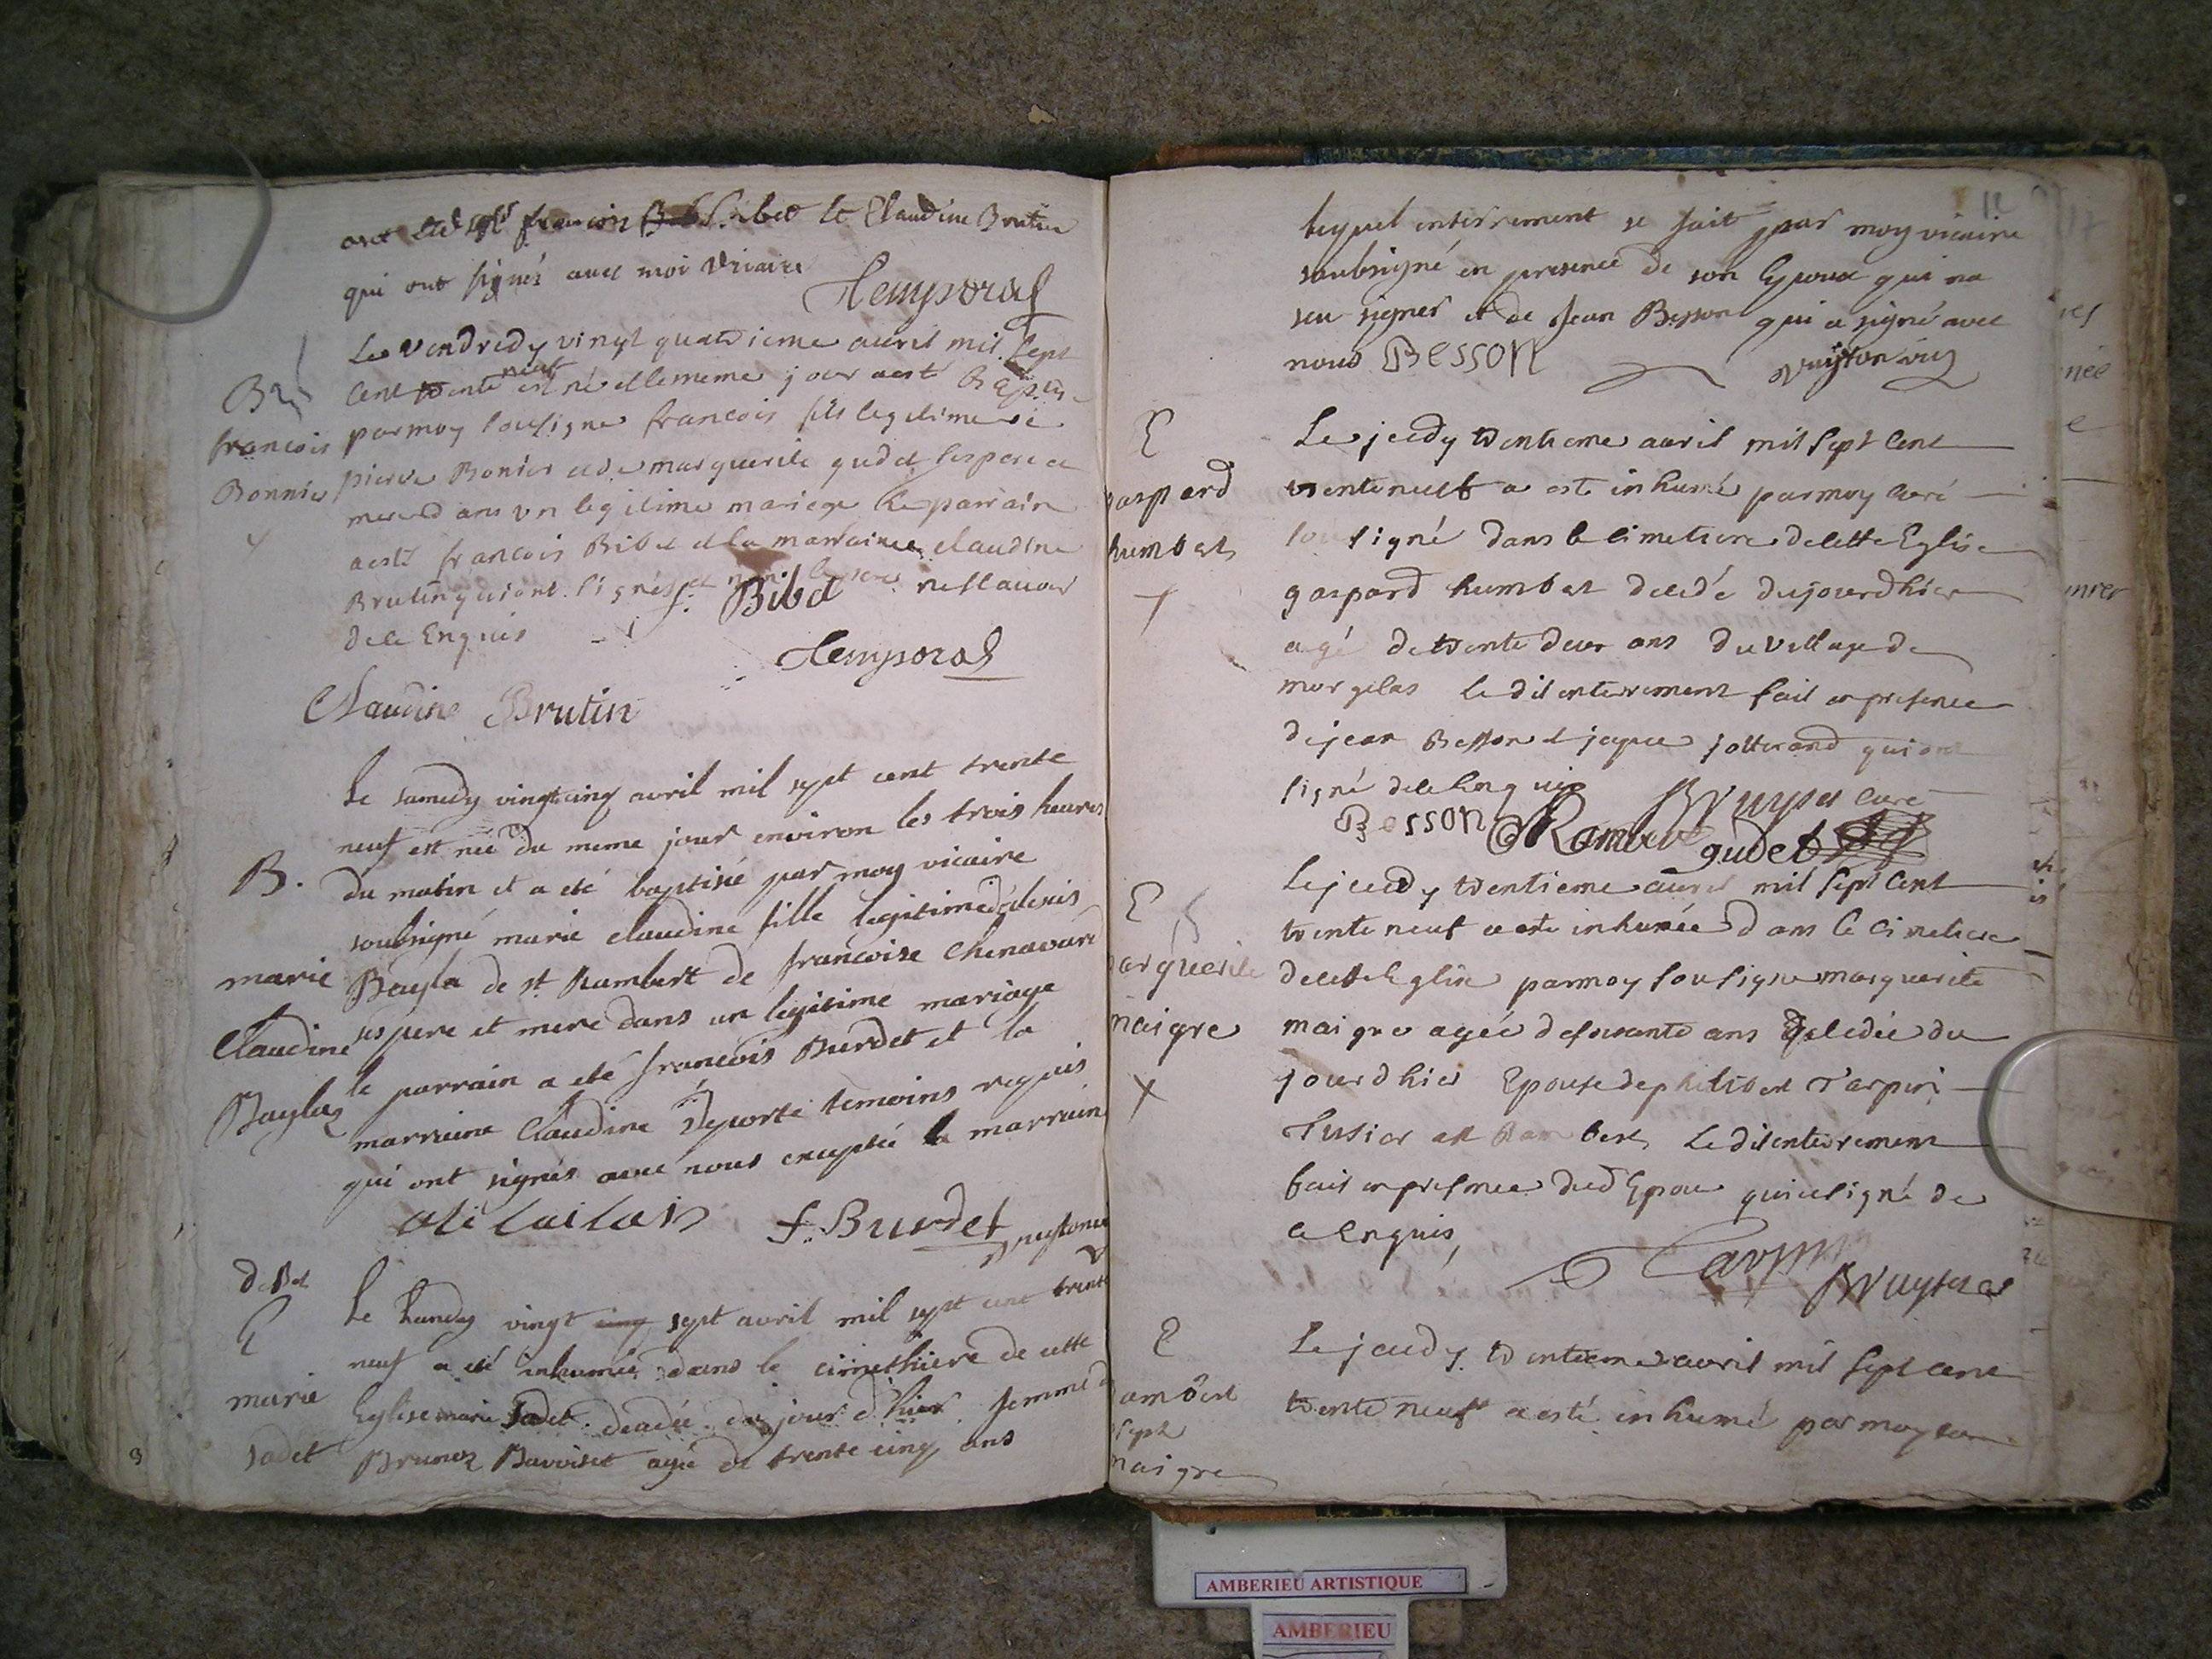 qui ont signés avec moi vicaire
Temporal
Le vendredy vingt quatrieme avril mil sept
cent trente neuf est né et le meme jour a esté Baptisé
par moy sousigne francois fils legitime de
francois
Bonnier
pierre Bonier et de marguerite gudet ses pere et
mere d ans vn legitime mariage Le parrain
a esté francois Bibet et la marraine claudine
Brutin qui ont signés
f. Bibet
de ce Enquis
Temporal
Claudine Brutin
Le samedy vingt cinq avril mil sept cent trente
neuf est née du meme jour environ les trois heures
B.
du matin et a eté baptisée par moy vicaire
soubsigné marie claudine fille legitime d'alexis
marie
Claudine
Baylaz
Bayla de st Rambert de francoise Chenavard
ses pere et mere dans un legitime mariage
le parrain a eté francois Burdet et la
marraine Claudine Deporte temoins requis
qui ont signés avec nous exceptée la marraine
f. Burdet
Le Lundy vingt cinq sept avril mil sept cent trente
E
neuf a eté inhumée dans le cimethiere de cette
marie
sadet
Eglise marie sadet decedée du jour d'hier femme d
Brunoz Bavoiset agée de trente cinq ans
12
lequel enterrement se fait par moy vicaire
soubsigné en presence de son Epoux qui na
sceu signer et de Jean Besson qui a signé avec
nous BESSON
E
gaspard
humbert
Le jeudy trentieme avril mil sept cent
trente neuf a esté inhumé par moy curé
sousigné dans le cimetiere de cette Eglise
gaspard humbert decedé du jourd hier
agé de trente deux ans du village de
morgelas le dit enterrement fait en presence
de jean Besson et jaque jotterand qui ont
signé de ce Enquis
BESSON
gudet
E
marguerite
maigre
Le jeudy trentieme avril mil sept cent
trente neuf a esté inhumée d ans le cimetiere
de cette Eglise par moy sousigne marguerite
maigre agée de soixante ans decedée du
jourd hier Epouse de philibert Tarpin
Tusier a st Rambert le dit enterrement
fait en presence dud Epoux qui a signé de
ce Enquis
E
Le jeudy trentieme avril mil sept cent
trente neuf a esté inhumé par moy sou
maigre
AMBERIEU ARTISTIQUE
AMBERIEU